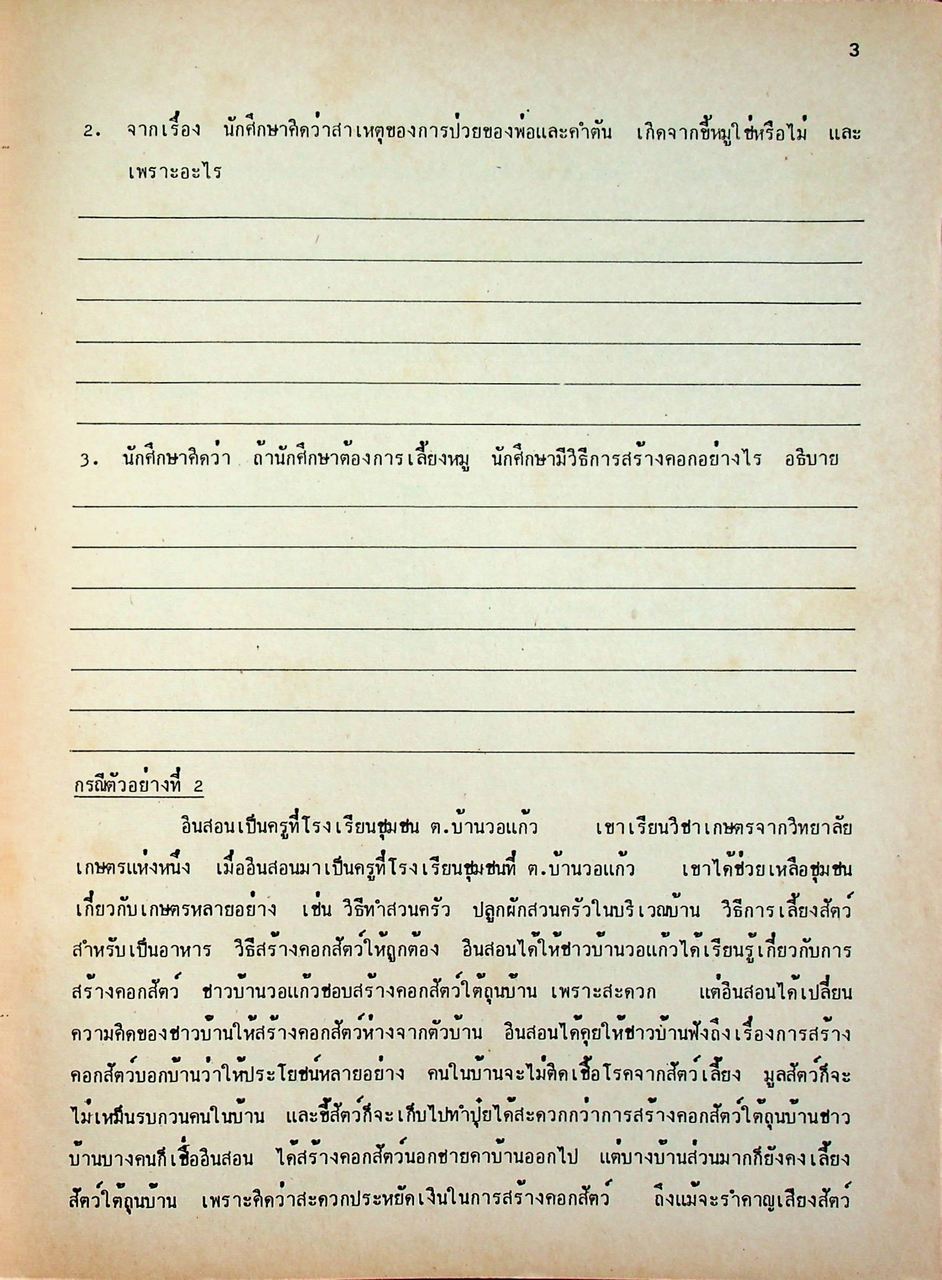 3
2. จากเรื่อง นักศึกษาคิดว่าสาเหตุของการป่วยของพ่อและคำตัน เกิดจากขี้หมูใช่หรือไม่ และ
เพราะอะไร
3. นักศึกษาคิดว่า ถ้านักศึกษาต้องการเลี้ยงหมู นักศึกษามีวิธีการสร้างคอกอย่างไร อธิบาย
กรณีตัวอย่างที่ 2
อินสอนเป็นครูที่โรงเรียนชุมชน ต.บ้านวอแก้ว เขาเรียนวิชาเกษตรจากวิทยาลัย
เกษตรแห่งหนึ่ง เมื่ออินสอนมาเป็นครูที่โรงเรียนชุมชนที่ ต.บ้านวอแก้ว เขาได้ช่วยเหลือชุมชน
เกี่ยวกับเกษตรหลายอย่าง เช่น วิธีทำสวนครัว ปลูกผักสวนครัวในบริเวณบ้าน วิธีการเลี้ยงสัตว์
สำหรับเป็นอาหาร วิธีสร้างคอกสัตว์ให้ถูกต้อง อินสอนได้ให้ชาวบ้านวอแก้วได้เรียนรู้เกี่ยวกับการ
สร้างคอกสัตว์ ชาวบ้านวอแก้วชอบสร้างคอกสัตว์ใต้ถุนบ้าน เพราะสะดวก แต่อินสอนได้เปลี่ยน
ความคิดของชาวบ้านให้สร้างคอกสัตว์ห่างจากตัวบ้าน อินสอนได้คุยให้ชาวบ้านฟังถึงเรื่องการสร้าง
คอกสัตว์นอกบ้านว่าให้ประโยชน์หลายอย่าง คนในบ้านจะไม่ติดเชื้อโรคจากสัตว์เลี้ยง มูลสัตว์ก็จะ
ไม่เหม็นรบกวนคนในบ้าน และขี้สัตว์ก็จะเก็บไปทำปุ๋ยได้สะดวกกว่าการสร้างคอกสัตว์ใต้ถุนบ้านชาว
บ้านบางคนก็เชื่ออินสอน ได้สร้างคอกสัตว์นอกชายคาบ้านออกไป แต่บางบ้านส่วนมากก็ยังคงเลี้ยง
สัตว์ใต้ถุนบ้าน เพราะคิดว่าสะดวกประหยัดเงินในการสร้างคอกสัตว์ ถึงแม้จะรำคาญเสียงสัตว์